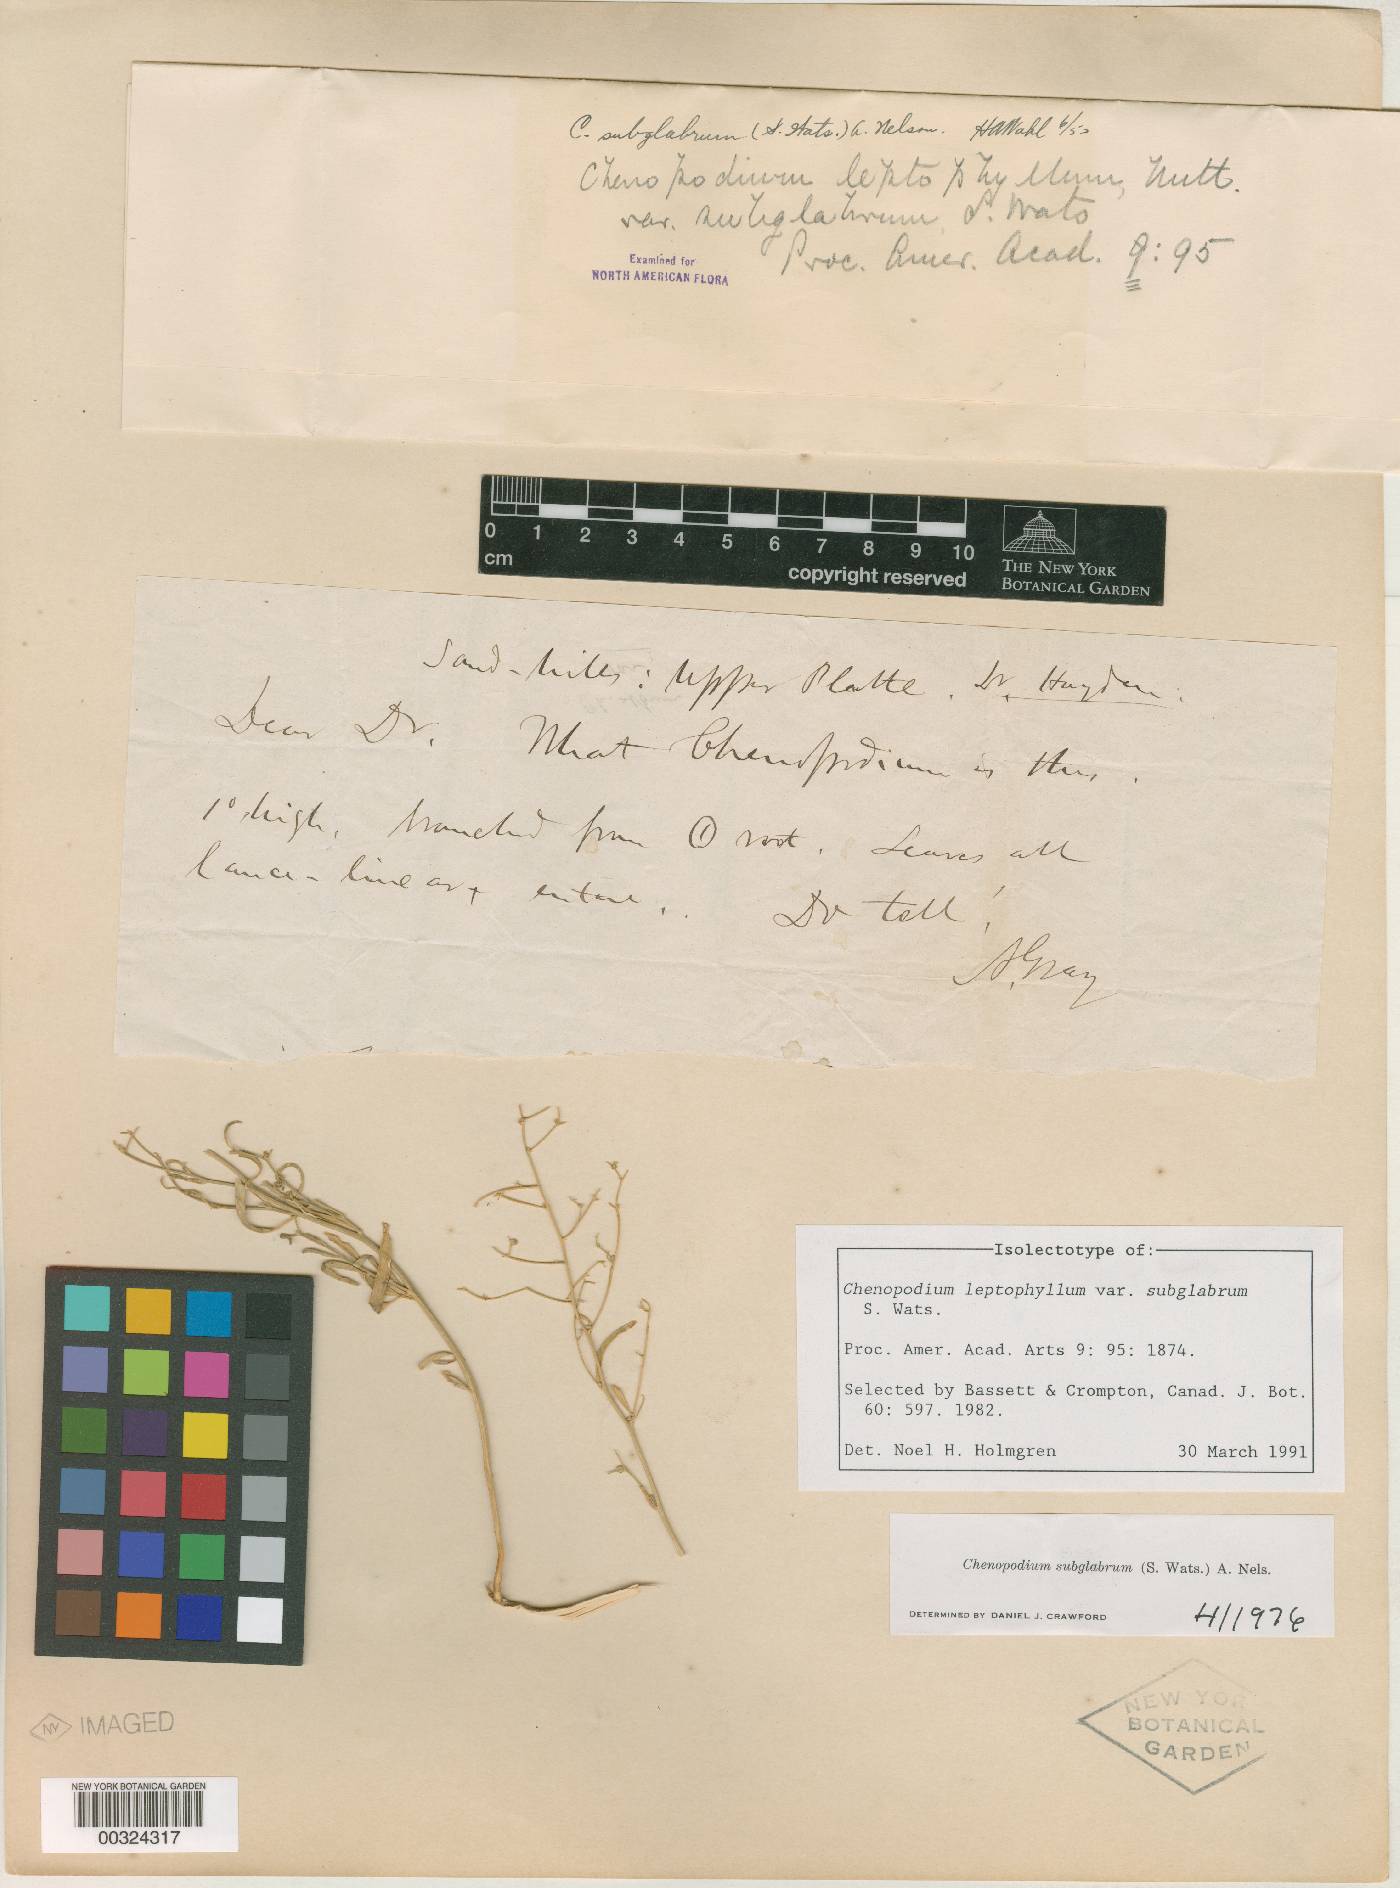 C. subglabrum (S. Wats.) A. Nelson. HAWahl 6/53
Chenopodium leptophyllum, Nutt.
var. subglabrum, S. Wats
Proc. Amer. Acad. 9: 95
Examined for
NORTH AMERICAN FLORA
0 1 2 3 4 5 6 7 8 9 10
cm
copyright reserved
THE NEW YORK
BOTANICAL GARDEN
Sand-hills: Upper Platte. Dr. Hayden.
Dear Dr. What Chenopodium is this.
1° high, branched from ① root. Leaves all
lance-linear & entire. Do tell!
A. Gray
Isolectotype of:
Chenopodium leptophyllum var. subglabrum
S. Wats.
Proc. Amer. Acad. Arts 9: 95: 1874.
Selected by Bassett & Crompton, Canad. J. Bot.
60: 597. 1982.
Det. Noel H. Holmgren 30 March 1991
Chenopodium subglabrum (S. Wats.) A. Nels.
DETERMINED BY DANIEL J. CRAWFORD 4/1976
NEW YORK
BOTANICAL
GARDEN
NY IMAGED
NEW YORK BOTANICAL GARDEN
00324317